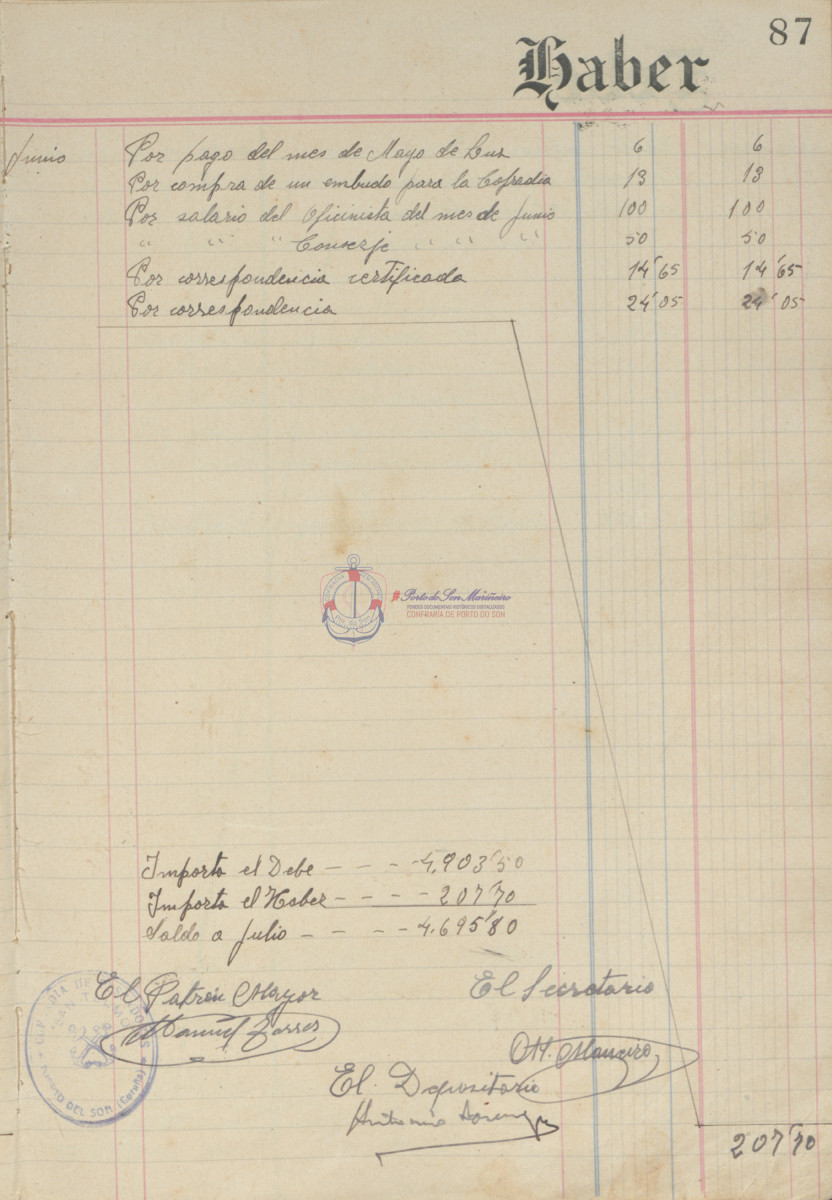 87
Haber
Junio Por pago del mes de Mayo de Luz 6 6
Por compra de un embudo para la Cofradia 13 13
Por salario del Oficinista del mes de Junio 100 100
" " " Conserje " " " 50 50
Por correspondencia certificada 14'65 14'65
Por correspondencia 24'05 24'05
#Porto do Son Mariñeiro
FONDOS DOCUMENTAIS HISTÓRICOS DIXITALIZADOS
CONFRARÍA DE PORTO DO SON
Importa el Debe - - - - 4,903'50
Importa el Haber - - - - 207'70
Saldo a Julio - - - - 4.695'80
El Patrón Mayor
El Secretario
Manuel
El Depositario
Antonio
PUERTO DEL SON (Coruña)
207'70